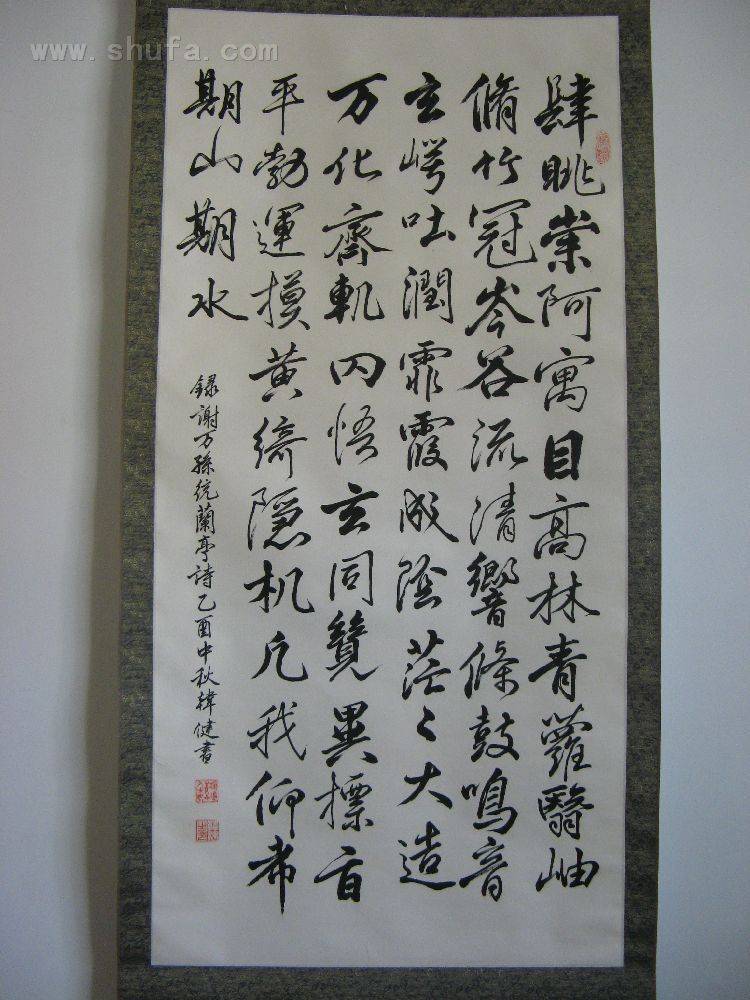 www.shufa.com
肆眺崇阿寓目高林青蘿翳岫
脩竹冠岑谷流清響條鼓鳴音
玄崿吐潤霏霞成陰茫〻大造
万化齊軌罔悟玄同競異標旨
平勃運摸黄綺隐机凡我仰希
期山期水
録謝万孫統蘭亭詩乙酉中秋韓健書